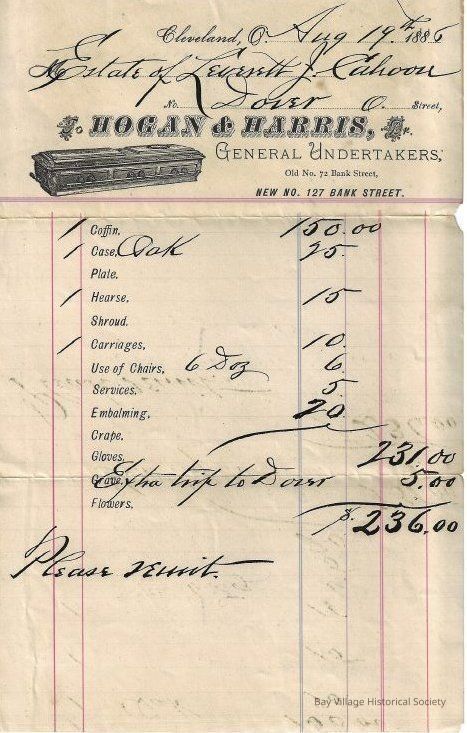 Cleveland, O. Aug 19th 1886
M Estate of Leverett J. Cahoon
No. Dover O. Street,
To HOGAN & HARRIS, Dr.
GENERAL UNDERTAKERS,
Old No. 72 Bank Street,
NEW NO. 127 BANK STREET.
1 Coffin, 150.00
1 Case, Oak 25.
Plate.
1 Hearse, 15
Shroud.
1 Carriages, 10.
Use of Chairs, 6 Doz 6
Services, 5.
Embalming, 20
Crape,
Gloves, 231.00
Grave, Extra trip to Dover 5.00
Flowers, $ 236.00
Please remit.
Bay Village Historical Society